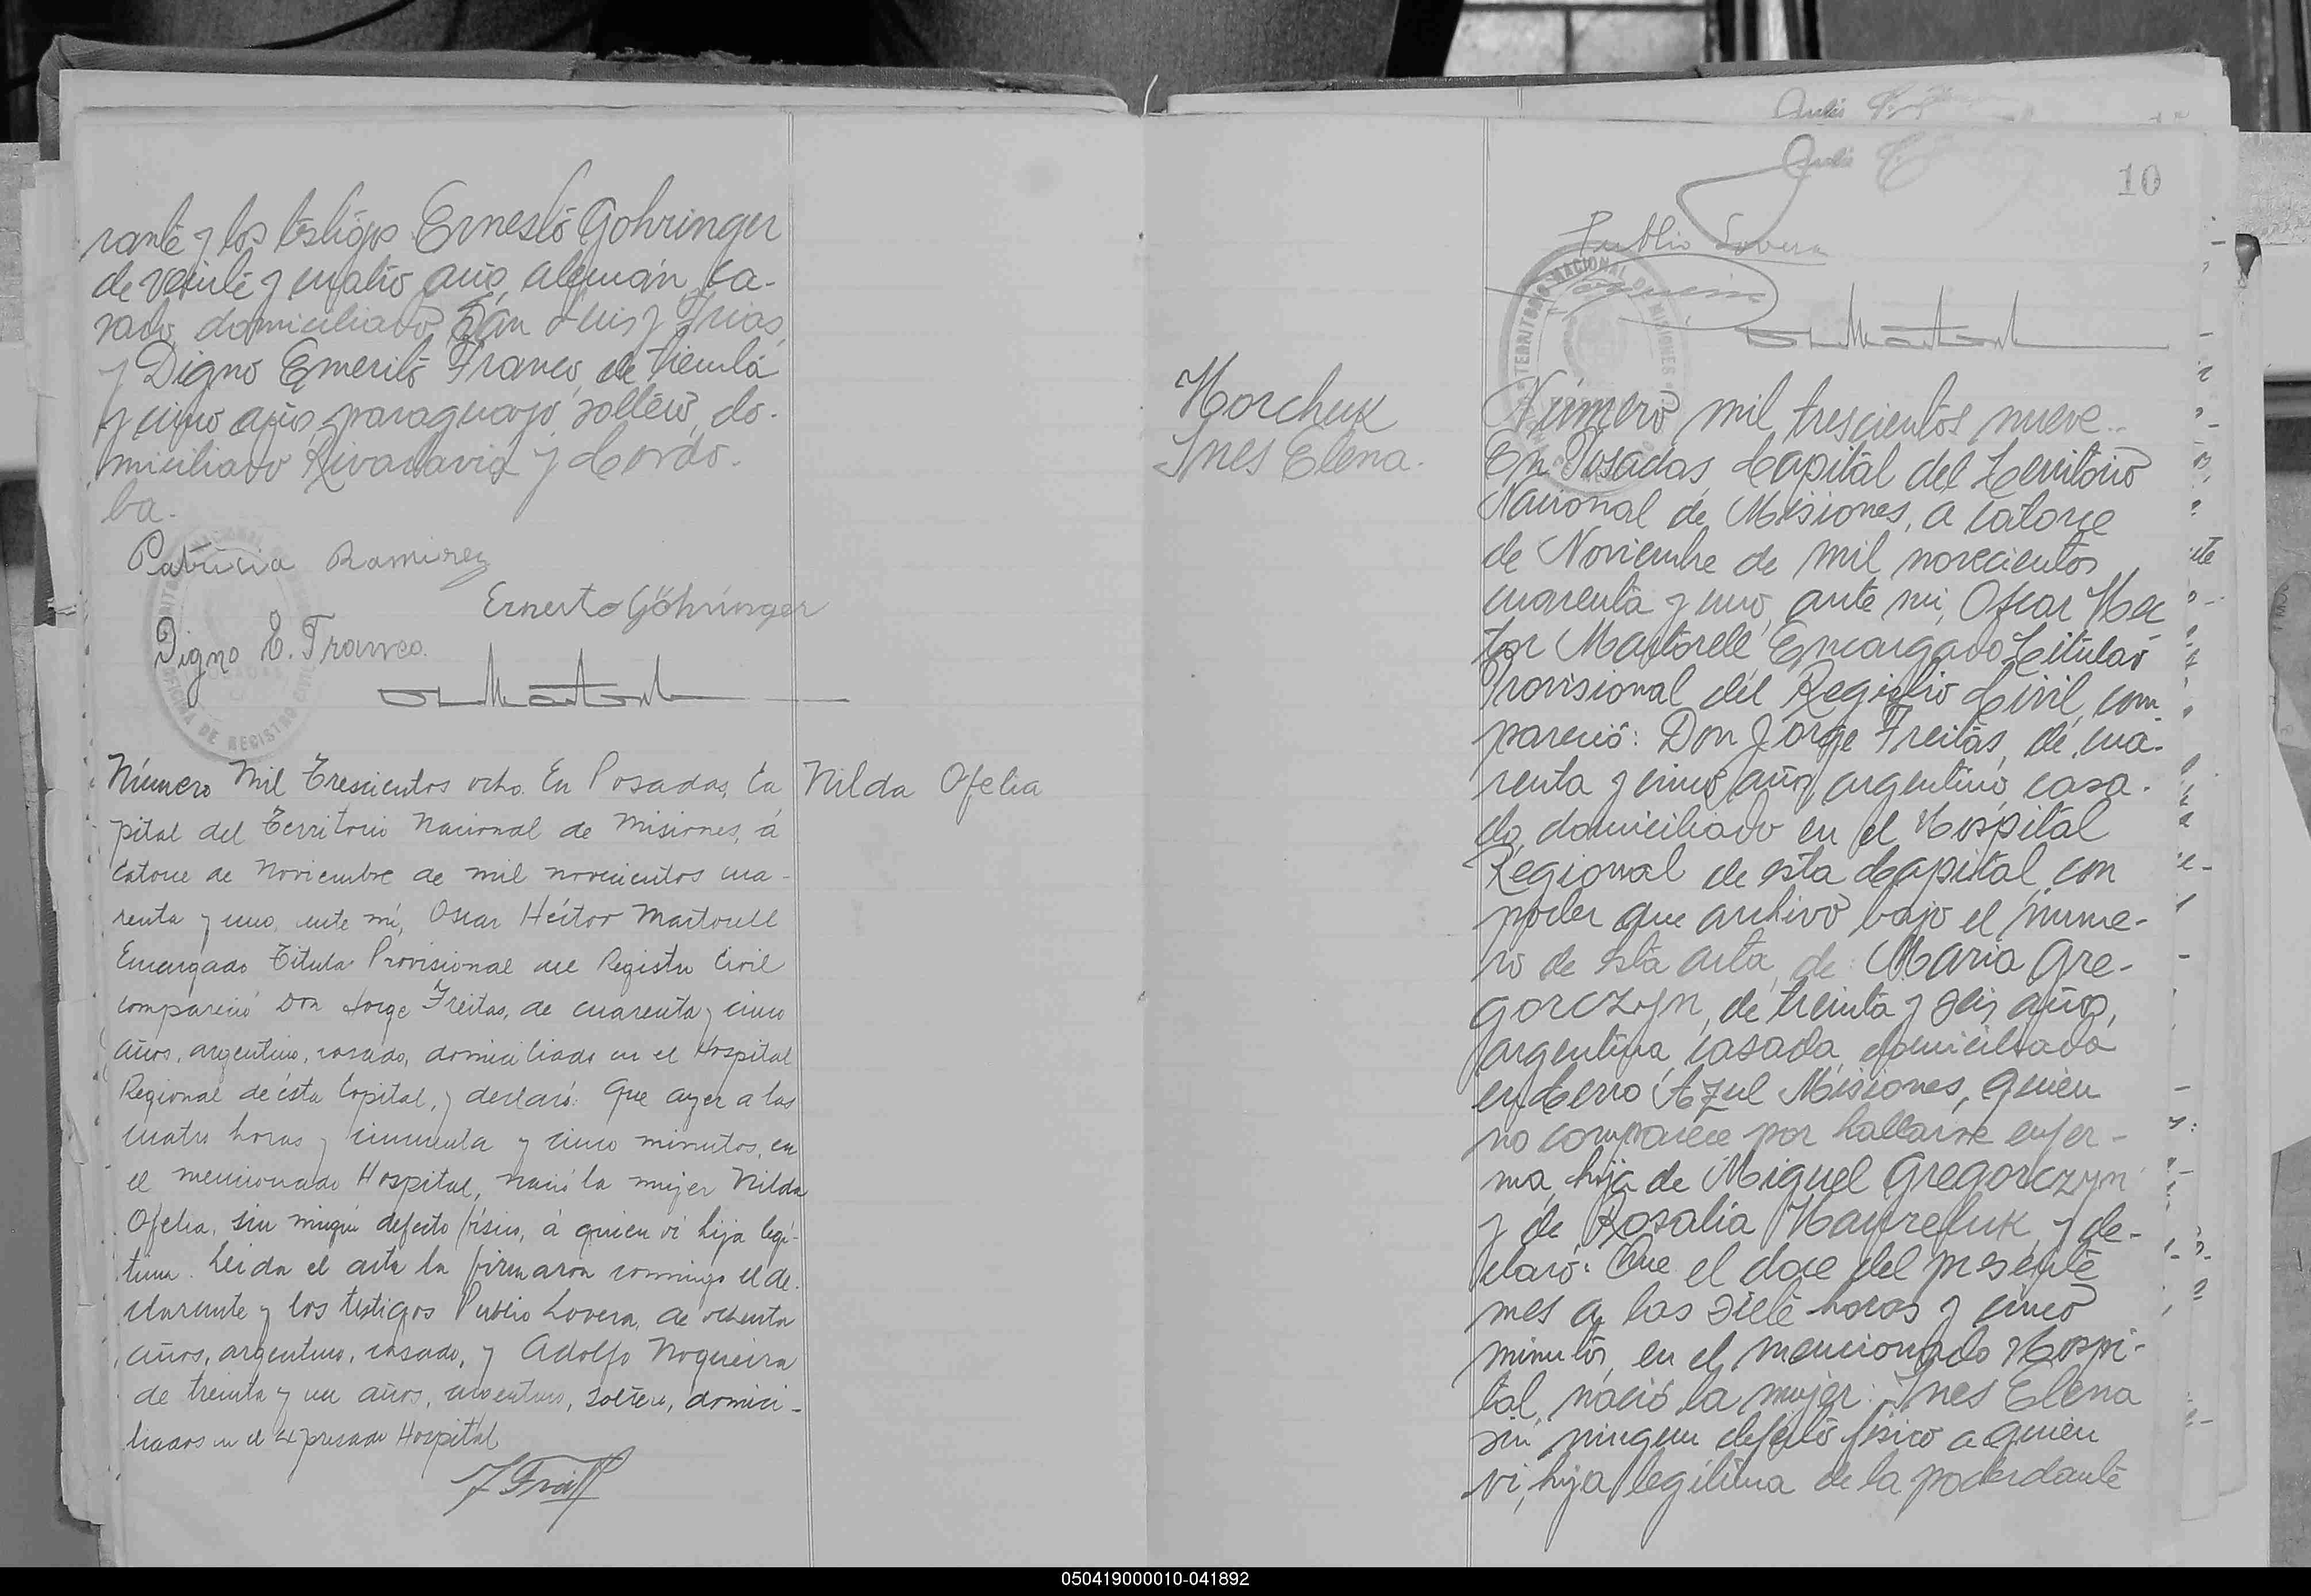 rante y los testigos Ernesto Gohringer
de veinte y cuatro años, alemán, ca-
sado, domiciliado San Luis y Frias,
y Digno Emerito Franco, de treinta
y cinco años, paraguayo, soltero, do-
miciliado Rivadavia y Cordo-
ba.
Patricia Ramirez
Ernesto Göhringer
Digno E. Franco.
OFICINA DE REGISTRO CIVIL
Número Mil Trescientos ocho. En Posadas, Ca
pital del Territorio Nacional de Misiones, á
catorce de Noviembre de mil novecientos cua-
renta y uno, ante mí, Oscar Héctor Martorell
Encargado Titular Provisional del Registro Civil
compareció Don Jorge Freitas, de cuarenta y cinco
años, argentino, casado, domiciliado en el Hospital
Regional de ésta Capital, y declaró: Que ayer a las
cuatro horas y cincuenta y cinco minutos, en
el mencionado Hospital, nació la mujer Nilda
Ofelia, sin ningún defecto físico, á quien vi hija legí-
tima. Leida el acta la firmaron conmigo el de-
clarante y los testigos Publio Lovera, de ochenta
años, argentino, casado, y Adolfo Nogueira
de treinta y un años, argentino, soltero, domici-
liados en el expresado Hospital
Nilda Ofelia
10
Publio Lovera
TERRITORIO NACIONAL DE MISIONES
Horchuk
Ines Elena.
Número mil trescientos nueve..
En Posadas, Capital del Territorio
Nacional de Misiones, a catorce
de Noviembre de mil novecientos
cuarenta y uno, ante mi, Oscar Hec
tor Martorell, Encargado Titular
Provisional del Registro Civil, com
pareció: Don Jorge Freitas, de cua-
renta y cinco años, argentino, casa-
do, domiciliado en el Hospital
Regional de esta Capital, con
poder que archivo bajo el núme-
ro de esta acta, de: Maria Gre-
gorczyn, de treinta y seis años,
argentina, casada, domiciliada
en Cerro Azul Misiones, quien
no comparece por hallarse enfer-
ma, hija de Miguel Gregorczyn
y de Rosalia Hayreluk, y de-
claró: Que el doce del presente
mes a las siete horas y cinco
minutos, en el mencionado Hospi-
tal, nació la mujer: Ines Elena
sin ningun defecto fisico a quien
vi, hija legitima de la poderdante
050419000010-041892